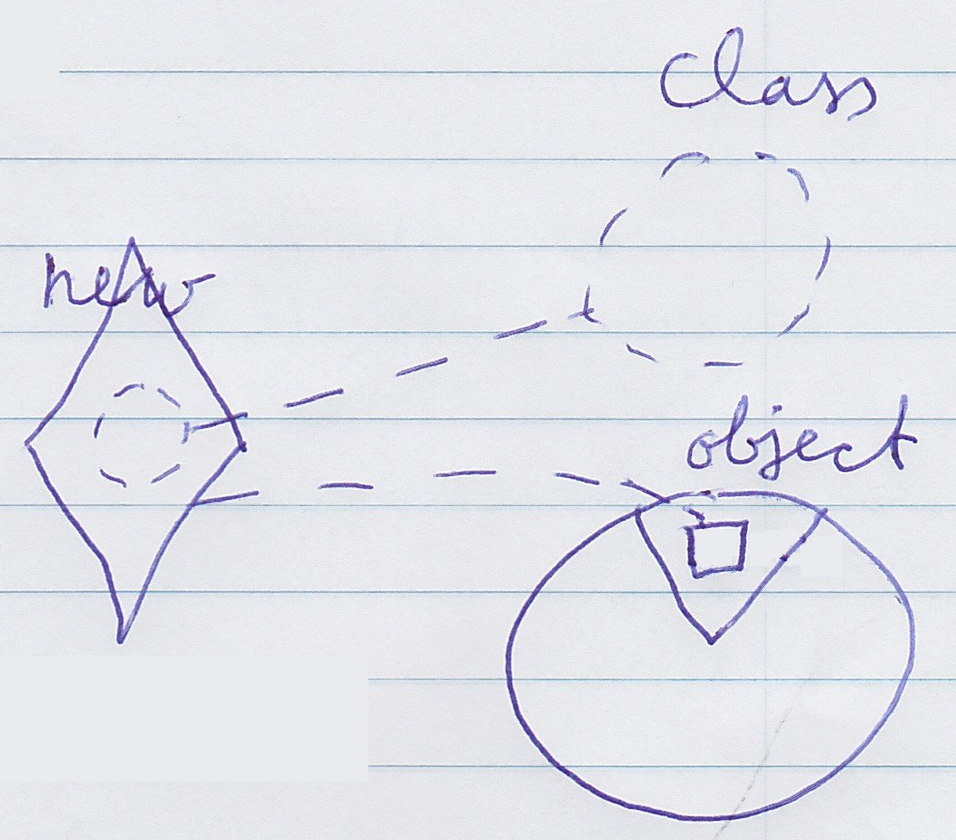 Class
new
object